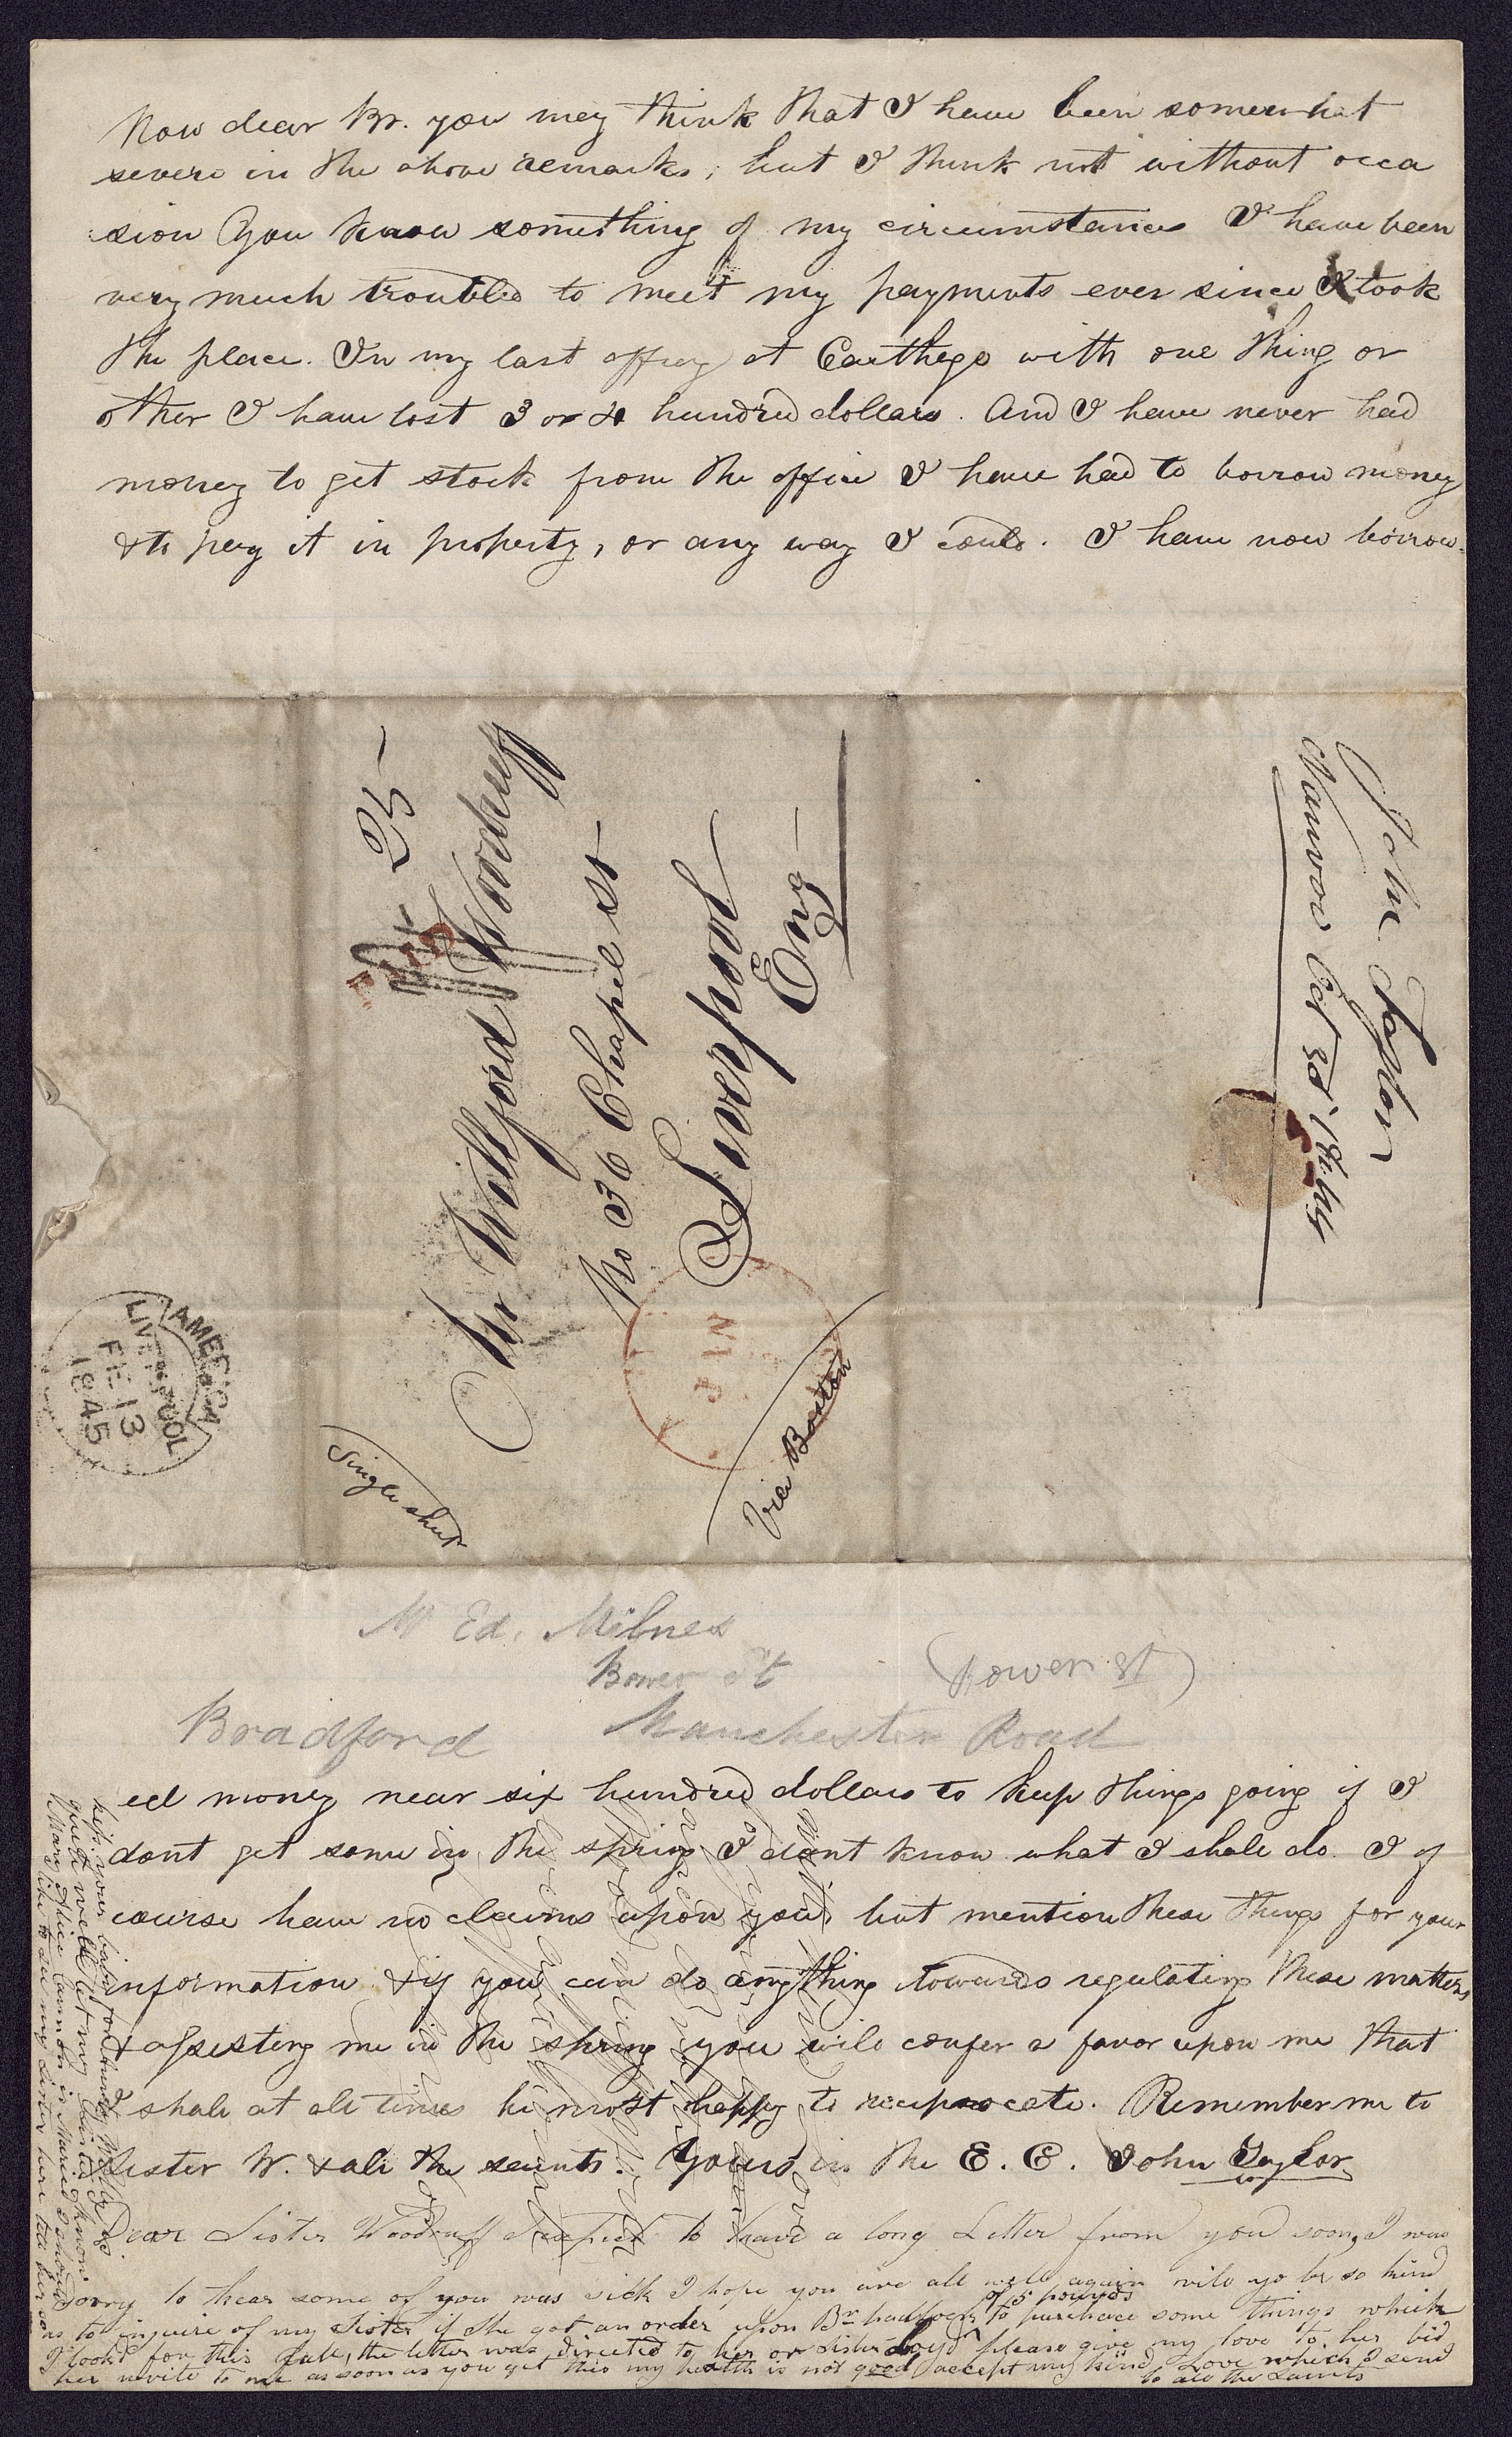 Now dear Br. you mey think that I have been somewhat
severe in the above remarks; but I think not without occa
sion You know something of my circumstances I have been
very much troubled to meet my payments ever since I took
the place. In my last affray at Carthage with one thing or
other I have lost 3 or 4 hundred dollars. And I have never had
money to get stock from the office I have had to borrow money
& to pay it in property, or any way I could. I have now borrow-
25-
PAID
Mr Willford Woodruff
No 36 Chapel st
Liverpool
Eng
Single sheet
Via Boston
AMERICA
LIVERPOOL
FE 13
1845
John Taylor
Nauvoo Oct 30th 1844
Mr Ed. Milnes
Bower St
(Bower St)
Bradford
Manchester Road
ed money near six hundred dollars to keep things going if I
dont get some in the spring I dont know what I shall do. I of
course have no claims upon you, but mention these things for your
information & if you can do anything towards regulating these matters
& assisting me in the spring you will confer a favor upon me that
I shall at all times be most happy to reciprocate. Remember me to
Sister W. & all the saints. Yours in the E. C. John Taylor
Dear Sister Woodruff I expect to have a long Letter from you soon, I was
sorry to hear some of you was sick I hope you are all well again will yo be so kind
as to inquire of my Sister if she got an order upon Br of 5 pounds to purchace some things which
I look'd for this fall, the letter was directed to her or sister please give my love to her bid
her write to me as soon as you get this my health is not good accept my kind Love which I send
to all the Saints